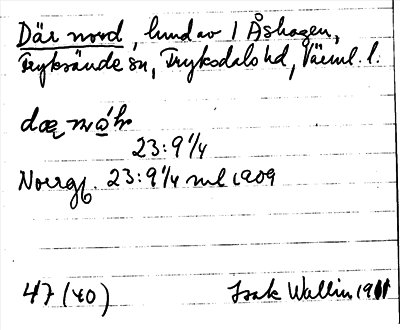 Där nord, hund av 1 Åshagen,
Fryksände sn, Fryksdals hd, Värml. l.
dæ nɷ́ʰr
23:9 1/4
Norrg. 23:9 1/4 ml 1909
47 (40) Isak Wallin 1911